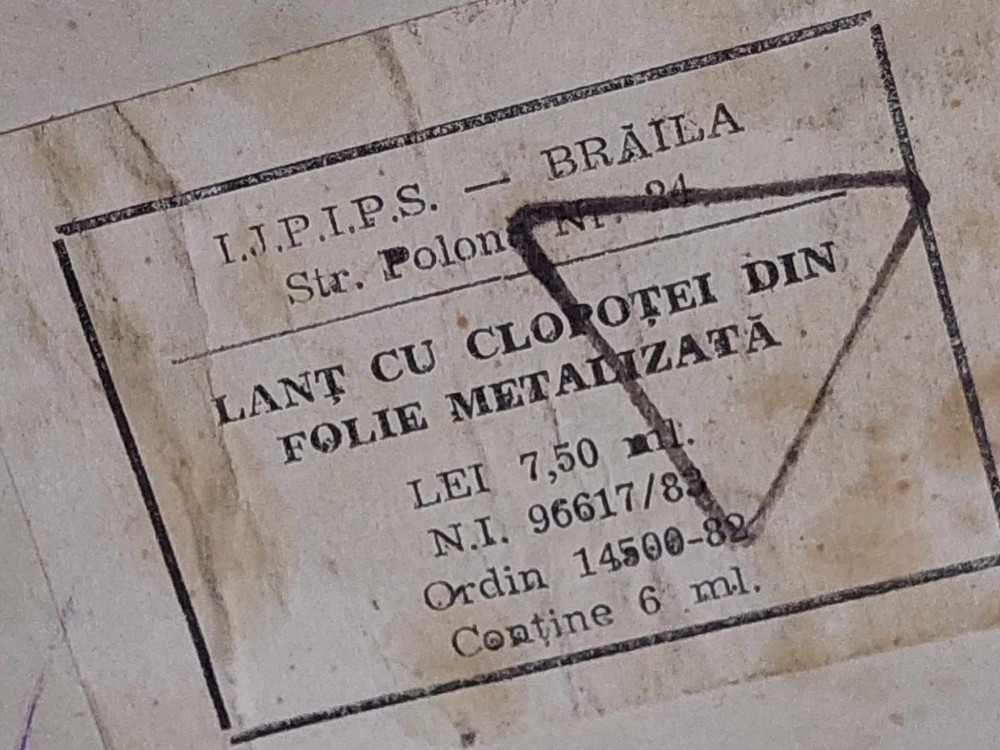 I.J.P.I.P.S. — BRĂILA
Str. Polonă Nr. 24
LANȚ CU CLOPOȚEI DIN
FOLIE METALIZATĂ
LEI 7,50 ml.
N.I. 96617/83
Ordin 14500-82
Conține 6 ml.